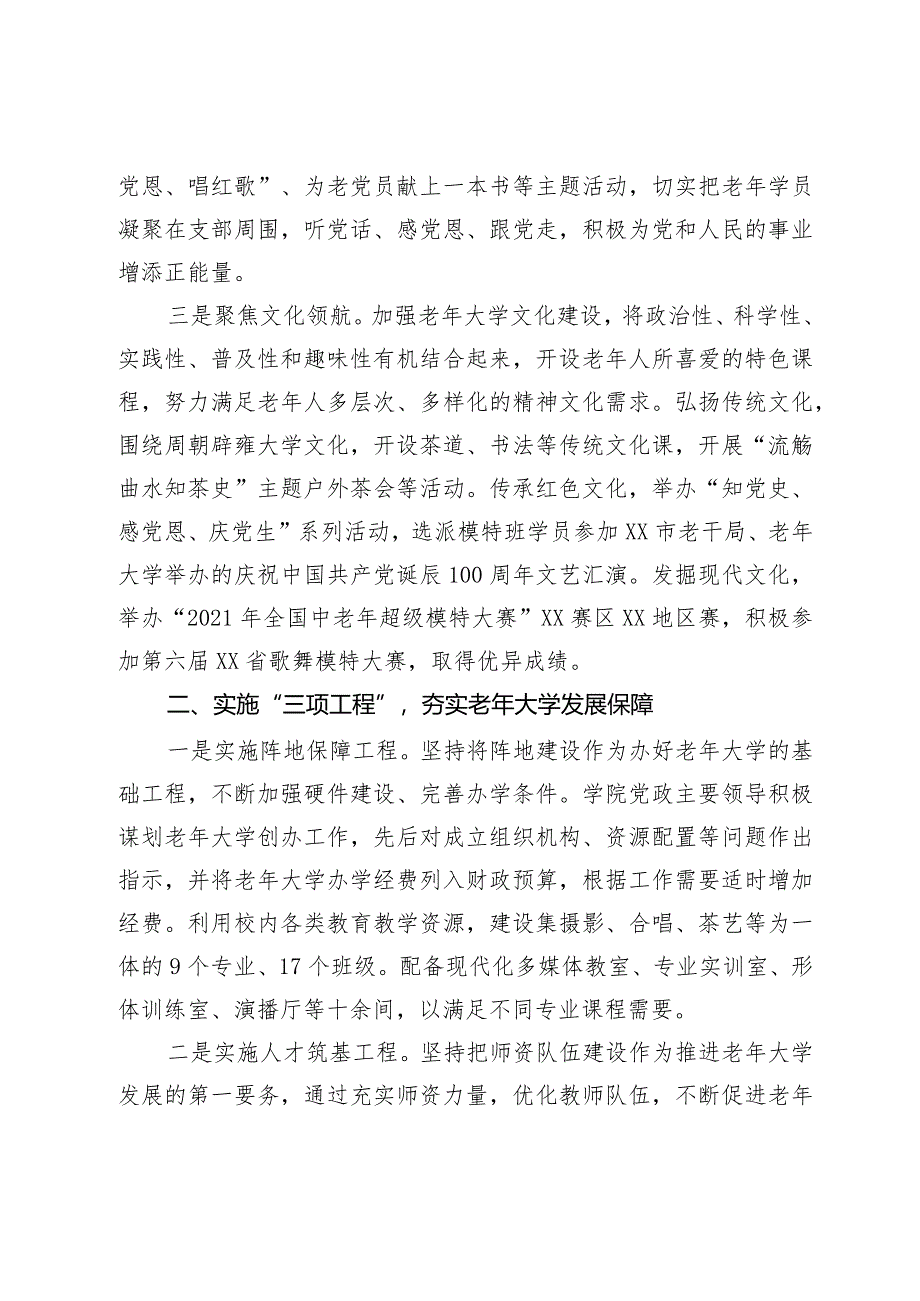 党恩、唱红歌”、为老党员献上一本书等主题活动，切实把老年学员
凝聚在支部周围，听党话、感党恩、跟党走，积极为党和人民的事业
增添正能量。
三是聚焦文化领航。加强老年大学文化建设，将政治性、科学性、
实践性、普及性和趣味性有机结合起来，开设老年人所喜爱的特色课
程，努力满足老年人多层次、多样化的精神文化需求。弘扬传统文化，
围绕周朝辟雍大学文化，开设茶道、书法等传统文化课，开展“流觞
曲水知茶史”主题户外茶会等活动。传承红色文化，举办“知党史、
感党恩、庆党生”系列活动，选派模特班学员参加 XX 市老干局、老年
大学举办的庆祝中国共产党诞辰 100 周年文艺汇演。发掘现代文化，
举办“2021 年全国中老年超级模特大赛”XX 赛区 XX 地区赛，积极参
加第六届 XX 省歌舞模特大赛，取得优异成绩。
二、实施“三项工程”，夯实老年大学发展保障
一是实施阵地保障工程。坚持将阵地建设作为办好老年大学的基
础工程，不断加强硬件建设、完善办学条件。学院党政主要领导积极
谋划老年大学创办工作，先后对成立组织机构、资源配置等问题作出
指示，并将老年大学办学经费列入财政预算，根据工作需要适时增加
经费。利用校内各类教育教学资源，建设集摄影、合唱、茶艺等为一
体的 9 个专业、17 个班级。配备现代化多媒体教室、专业实训室、形
体训练室、演播厅等十余间，以满足不同专业课程需要。
二是实施人才筑基工程。坚持把师资队伍建设作为推进老年大学
发展的第一要务，通过充实师资力量，优化教师队伍，不断促进老年